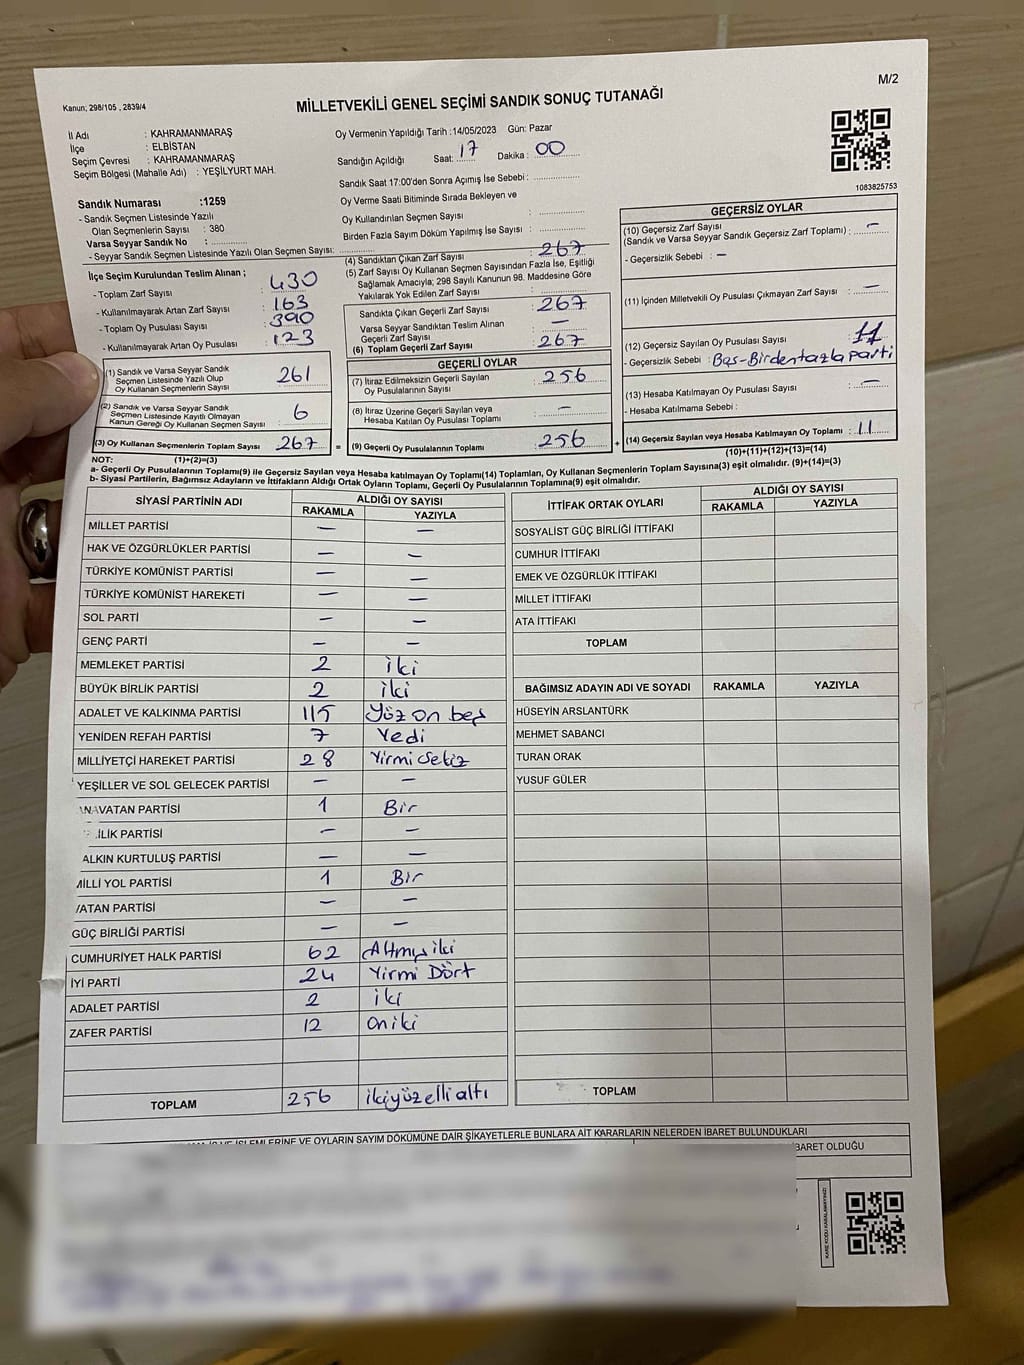 M/2
Kanun; 298/105 , 2839/4
MİLLETVEKİLİ GENEL SEÇİMİ SANDIK SONUÇ TUTANAĞI
İl Adı : KAHRAMANMARAŞ
İlçe : ELBİSTAN
Seçim Çevresi : KAHRAMANMARAŞ
Seçim Bölgesi (Mahalle Adı) : YEŞİLYURT MAH.
Oy Vermenin Yapıldığı Tarih :14/05/2023 Gün: Pazar
Sandığın Açıldığı Saat: 17 Dakika : 00
Sandık Saat 17:00'den Sonra Açımış İse Sebebi :
Oy Verme Saati Bitiminde Sırada Bekleyen ve
Oy Kullandırılan Seçmen Sayısı :
Birden Fazla Sayım Döküm Yapılmış İse Sayısı :
1083825753
Sandık Numarası :1259
- Sandık Seçmen Listesinde Yazılı
Olan Seçmenlerin Sayısı : 380
Varsa Seyyar Sandık No :
- Seyyar Sandık Seçmen Listesinde Yazılı Olan Seçmen Sayısı:
İlçe Seçim Kurulundan Teslim Alınan ;
- Toplam Zarf Sayısı : 430
- Kullanılmayarak Artan Zarf Sayısı : 163
- Toplam Oy Pusulası Sayısı : 390
- Kullanılmayarak Artan Oy Pusulası : 123
(1) Sandık ve Varsa Seyyar Sandık
Seçmen Listesinde Yazılı Olup
Oy Kullanan Seçmenlerin Sayısı 261
(2) Sandık ve Varsa Seyyar Sandık
Seçmen Listesinde Kayıtlı Olmayan
Kanun Gereği Oy Kullanan Seçmen Sayısı 6
(3) Oy Kullanan Seçmenlerin Toplam Sayısı 267 =
(1)+(2)=(3)
(4) Sandıktan Çıkan Zarf Sayısı : 267
(5) Zarf Sayısı Oy Kullanan Seçmen Sayısından Fazla İse, Eşitliği
Sağlamak Amacıyla; 298 Sayılı Kanunun 98. Maddesine Göre
Yakılarak Yok Edilen Zarf Sayısı :
Sandıkta Çıkan Geçerli Zarf Sayısı : 267
Varsa Seyyar Sandıktan Teslim Alınan
Geçerli Zarf Sayısı : —
(6) Toplam Geçerli Zarf Sayısı : 267
GEÇERLİ OYLAR
(7) İtiraz Edilmeksizin Geçerli Sayılan
Oy Pusulalarının Sayısı : 256
(8) İtiraz Üzerine Geçerli Sayılan veya
Hesaba Katılan Oy Pusulası Toplamı : —
(9) Geçerli Oy Pusulalarının Toplamı 256 +
GEÇERSİZ OYLAR
(10) Geçersiz Zarf Sayısı
(Sandık ve Varsa Seyyar Sandık Geçersiz Zarf Toplamı) : —
- Geçersizlik Sebebi : —
(11) İçinden Milletvekili Oy Pusulası Çıkmayan Zarf Sayısı : —
(12) Geçersiz Sayılan Oy Pusulası Sayısı : 11
- Geçersizlik Sebebi : Boş-Birden fazla parti
(13) Hesaba Katılmayan Oy Pusulası Sayısı : —
- Hesaba Katılmama Sebebi :
(14) Geçersiz Sayılan veya Hesaba Katılmayan Oy Toplamı : 11
(10)+(11)+(12)+(13)=(14)
NOT:
a- Geçerli Oy Pusulalarının Toplamı(9) ile Geçersiz Sayılan veya Hesaba katılmayan Oy Toplamı(14) Toplamları, Oy Kullanan Seçmenlerin Toplam Sayısına(3) eşit olmalıdır. (9)+(14)=(3)
b- Siyasi Partilerin, Bağımsız Adayların ve İttifakların Aldığı Ortak Oyların Toplamı, Geçerli Oy Pusulalarının Toplamına(9) eşit olmalıdır.
SİYASİ PARTİNİN ADI ALDIĞI OY SAYISI
RAKAMLA YAZIYLA
MİLLET PARTİSİ — —
HAK VE ÖZGÜRLÜKLER PARTİSİ — —
TÜRKİYE KOMÜNİST PARTİSİ — —
TÜRKİYE KOMÜNİST HAREKETİ — —
SOL PARTİ — —
GENÇ PARTİ — —
MEMLEKET PARTİSİ 2 iki
BÜYÜK BİRLİK PARTİSİ 2 iki
ADALET VE KALKINMA PARTİSİ 115 Yüz on beş
YENİDEN REFAH PARTİSİ 7 Yedi
MİLLİYETÇİ HAREKET PARTİSİ 28 Yirmi sekiz
YEŞİLLER VE SOL GELECEK PARTİSİ — —
NAVATAN PARTİSİ 1 Bir
İLİK PARTİSİ — —
ALKIN KURTULUŞ PARTİSİ — —
MİLLİ YOL PARTİSİ 1 Bir
VATAN PARTİSİ — —
GÜÇ BİRLİĞİ PARTİSİ — —
CUMHURİYET HALK PARTİSİ 62 Altmış iki
İYİ PARTİ 24 Yirmi Dört
ADALET PARTİSİ 2 iki
ZAFER PARTİSİ 12 On iki
TOPLAM 256 ikiyüzelli altı
İTTİFAK ORTAK OYLARI ALDIĞI OY SAYISI
RAKAMLA YAZIYLA
SOSYALİST GÜÇ BİRLİĞİ İTTİFAKI
CUMHUR İTTİFAKI
EMEK VE ÖZGÜRLÜK İTTİFAKI
MİLLET İTTİFAKI
ATA İTTİFAKI
TOPLAM
BAĞIMSIZ ADAYIN ADI VE SOYADI RAKAMLA YAZIYLA
HÜSEYİN ARSLANTÜRK
MEHMET SABANCI
TURAN ORAK
YUSUF GÜLER
TOPLAM
İŞLEMLERİNE VE OYLARIN SAYIM DÖKÜMÜNE DAİR ŞİKAYETLERLE BUNLARA AİT KARARLARIN NELERDEN İBARET BULUNDUKLARI
BARET OLDUĞU
KARE KODU KARALAMAYINIZ!